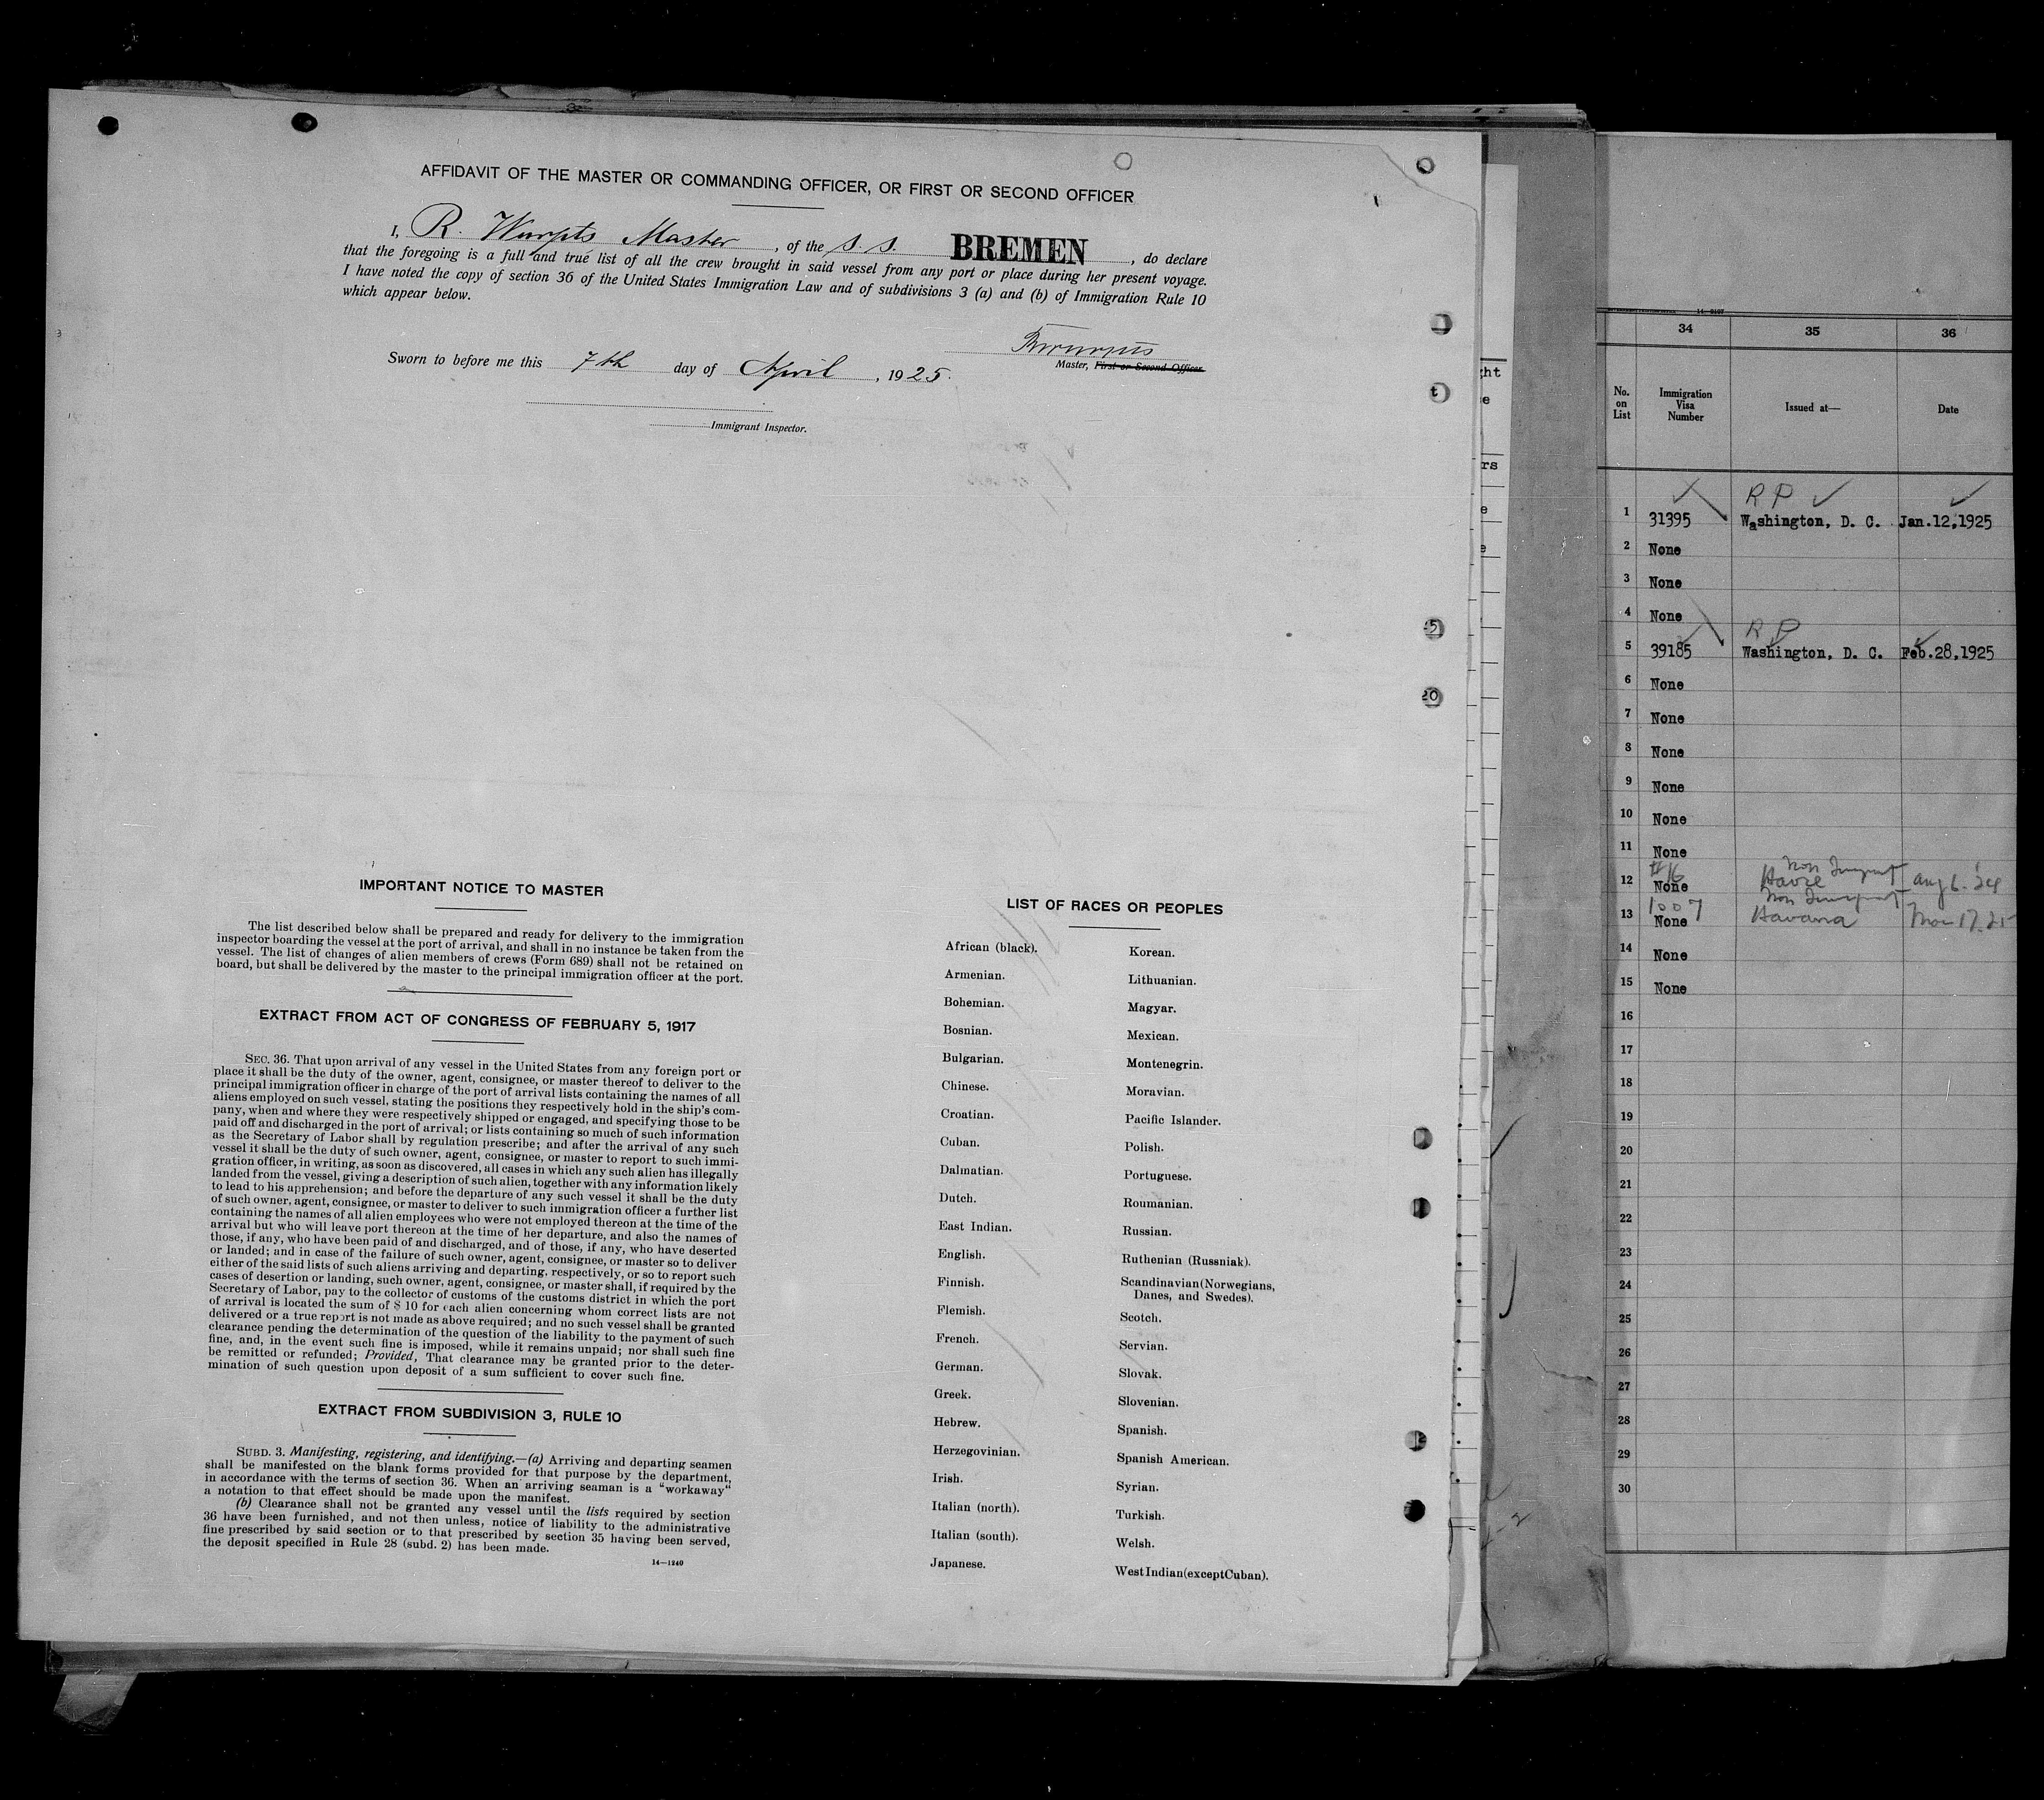 AFFIDAVIT OF THE MASTER OR COMMANDING OFFICER, OR FIRST OR SECOND OFFICER
I, R. Wurpts Master, of the S. S. BREMEN, do declare
that the foregoing is a full and true list of all the crew brought in said vessel from any port or place during her present voyage.
I have noted the copy of section 36 of the United States Immigration Law and of subdivisions 3 (a) and (b) of Immigration Rule 10
which appear below.
Sworn to before me this 7th day of April, 1925.
Master, First or Second Officer.
Immigrant Inspector.
IMPORTANT NOTICE TO MASTER
The list described below shall be prepared and ready for delivery to the immigration
inspector boarding the vessel at the port of arrival, and shall in no instance be taken from the
vessel. The list of changes of alien members of crews (Form 689) shall not be retained on
board, but shall be delivered by the master to the principal immigration officer at the port.
EXTRACT FROM ACT OF CONGRESS OF FEBRUARY 5, 1917
SEC. 36. That upon arrival of any vessel in the United States from any foreign port or
place it shall be the duty of the owner, agent, consignee, or master thereof to deliver to the
principal immigration officer in charge of the port of arrival lists containing the names of all
aliens employed on such vessel, stating the positions they respectively hold in the ship's com-
pany, when and where they were respectively shipped or engaged, and specifying those to be
paid off and discharged in the port of arrival; or lists containing so much of such information
as the Secretary of Labor shall by regulation prescribe; and after the arrival of any such
vessel it shall be the duty of such owner, agent, consignee, or master to report to such immi-
gration officer, in writing, as soon as discovered, all cases in which any such alien has illegally
landed from the vessel, giving a description of such alien, together with any information likely
to lead to his apprehension; and before the departure of any such vessel it shall be the duty
of such owner, agent, consignee, or master to deliver to such immigration officer a further list
containing the names of all alien employees who were not employed thereon at the time of the
arrival but who will leave port thereon at the time of her departure, and also the names of
those, if any, who have been paid of and discharged, and of those, if any, who have deserted
or landed; and in case of the failure of such owner, agent, consignee, or master so to deliver
either of the said lists of such aliens arriving and departing, respectively, or so to report such
cases of desertion or landing, such owner, agent, consignee, or master shall, if required by the
Secretary of Labor, pay to the collector of customs of the customs district in which the port
of arrival is located the sum of $ 10 for each alien concerning whom correct lists are not
delivered or a true report is not made as above required; and no such vessel shall be granted
clearance pending the determination of the question of the liability to the payment of such
fine, and, in the event such fine is imposed, while it remains unpaid; nor shall such fine
be remitted or refunded; Provided, That clearance may be granted prior to the deter-
mination of such question upon deposit of a sum sufficient to cover such fine.
EXTRACT FROM SUBDIVISION 3, RULE 10
SUBD. 3. Manifesting, registering, and identifying.—(a) Arriving and departing seamen
shall be manifested on the blank forms provided for that purpose by the department,
in accordance with the terms of section 36. When an arriving seaman is a "workaway"
a notation to that effect should be made upon the manifest.
(b) Clearance shall not be granted any vessel until the lists required by section
36 have been furnished, and not then unless, notice of liability to the administrative
fine prescribed by said section or to that prescribed by section 35 having been served,
the deposit specified in Rule 28 (subd. 2) has been made.
14—1240
LIST OF RACES OR PEOPLES
African (black).
Armenian.
Bohemian.
Bosnian.
Bulgarian.
Chinese.
Croatian.
Cuban.
Dalmatian.
Dutch.
East Indian.
English.
Finnish.
Flemish.
French.
German.
Greek.
Hebrew.
Herzegovinian.
Irish.
Italian (north).
Italian (south).
Japanese.
Korean.
Lithuanian.
Magyar.
Mexican.
Montenegrin.
Moravian.
Pacific Islander.
Polish.
Portuguese.
Roumanian.
Russian.
Ruthenian (Russniak).
Scandinavian (Norwegians,
Danes, and Swedes).
Scotch.
Servian.
Slovak.
Slovenian.
Spanish.
Spanish American.
Syrian.
Turkish.
Welsh.
West Indian (except Cuban).
34 35 36
No. on List Immigration Visa Number Issued at— Date
R P
1 31395 Washington, D. C. Jan.12,1925
2 None
3 None
4 None
R P
5 39185 Washington, D. C. Feb.28,1925
6 None
7 None
8 None
9 None
10 None
11 None
#16 Non
12 None Havre Aug 6. 24
1007 Non
13 None Havana 17. 25
14 None
15 None
16
17
18
19
20
21
22
23
24
25
26
27
28
29
30